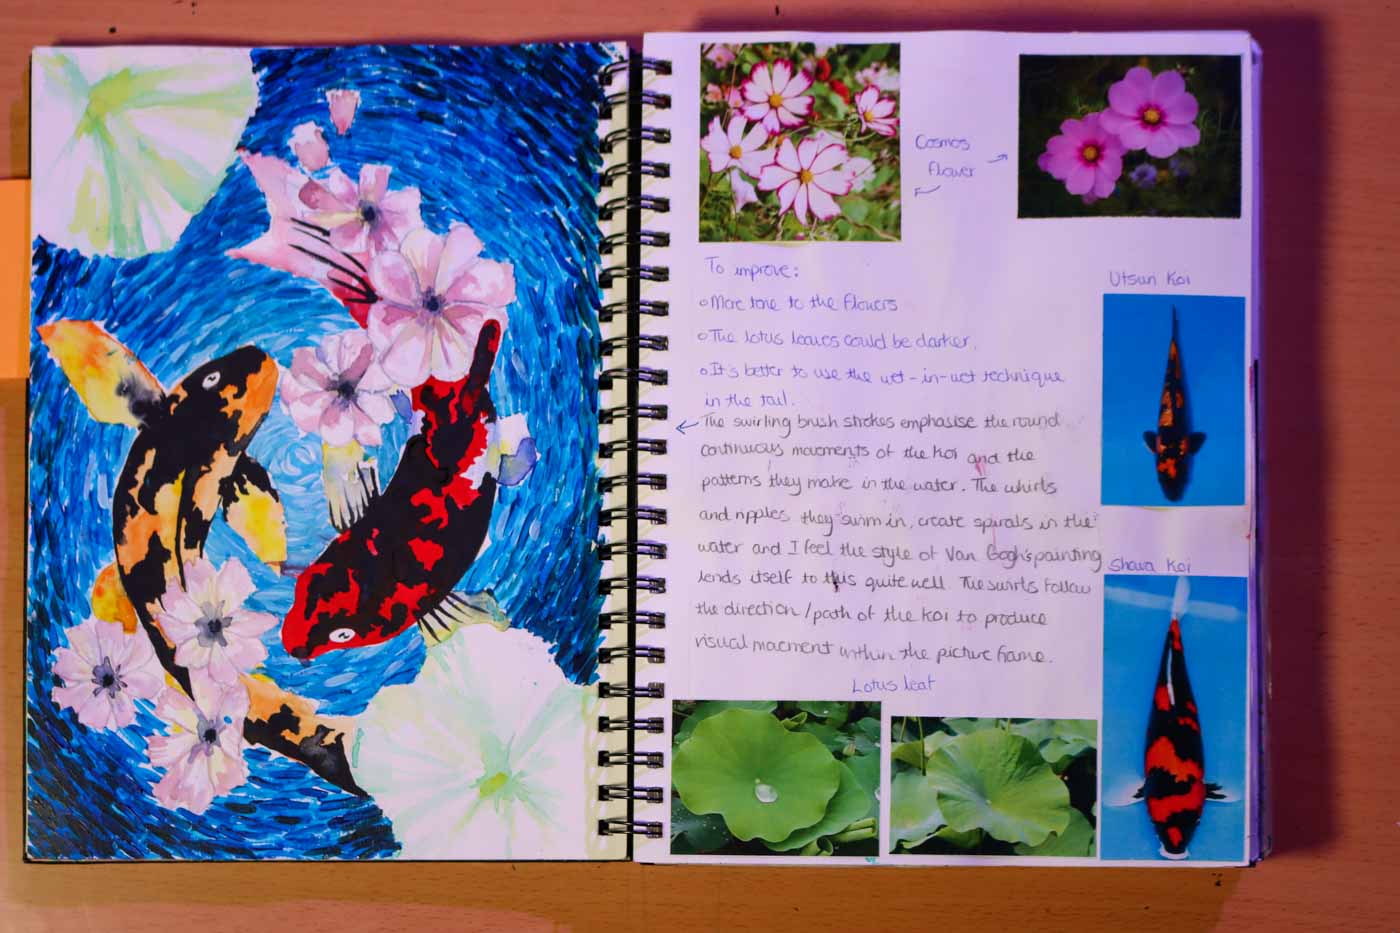 Cosmos
flower
To improve:
o More tone to the flowers
o The lotus leaves could be darker.
o It's better to use the wet-in-wet technique
in the tail.
The swirling brush strokes emphasise the round
continuous movements of the koi and the
patterns they make in the water. The whirls
and ripples they swim in, create spirals in the
water and I feel the style of Van Gogh's painting
lends itself to this quite well. The swirls follow
the direction/path of the koi to produce
visual movement within the picture frame.
Utsuri Koi
Showa Koi
Lotus leaf